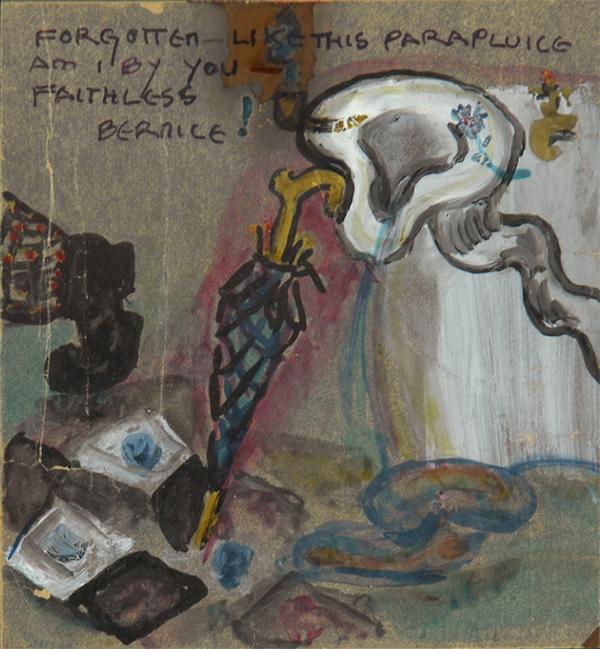 FORGOTTEN — LIKE THIS PARAPLUICE
AM I BY YOU —
FAITHLESS
BERNICE!